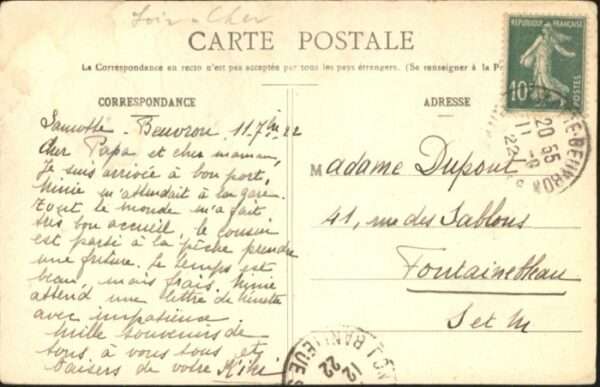 Loir-&-Cher
CARTE POSTALE
La Correspondance en recto n'est pas acceptée par tous les pays étrangers. (Se renseigner à la
CORRESPONDANCE
ADRESSE
REPUBLIQUE FRANÇAISE
10c
POSTES
Lamotte-Beuvron 11 7bre 22
Cher Papa et chère maman,
Je suis arrivée à bon port,
Mimie m'attendait à la gare.
Tout le monde m'a fait
très bon accueil, le cousin
est parti à la pêche prendre
une friture. Le temps est
beau, mais frais. Mimie
attend une lettre de Ninette
avec impatience.
Mille souvenirs de
tous à vous tous et
baisers de votre Kiki
Madame Dupont
41, rue des Sablons
Fontainebleau
S et M
E-BEUVRON
20 55
11 -9
22
12
22